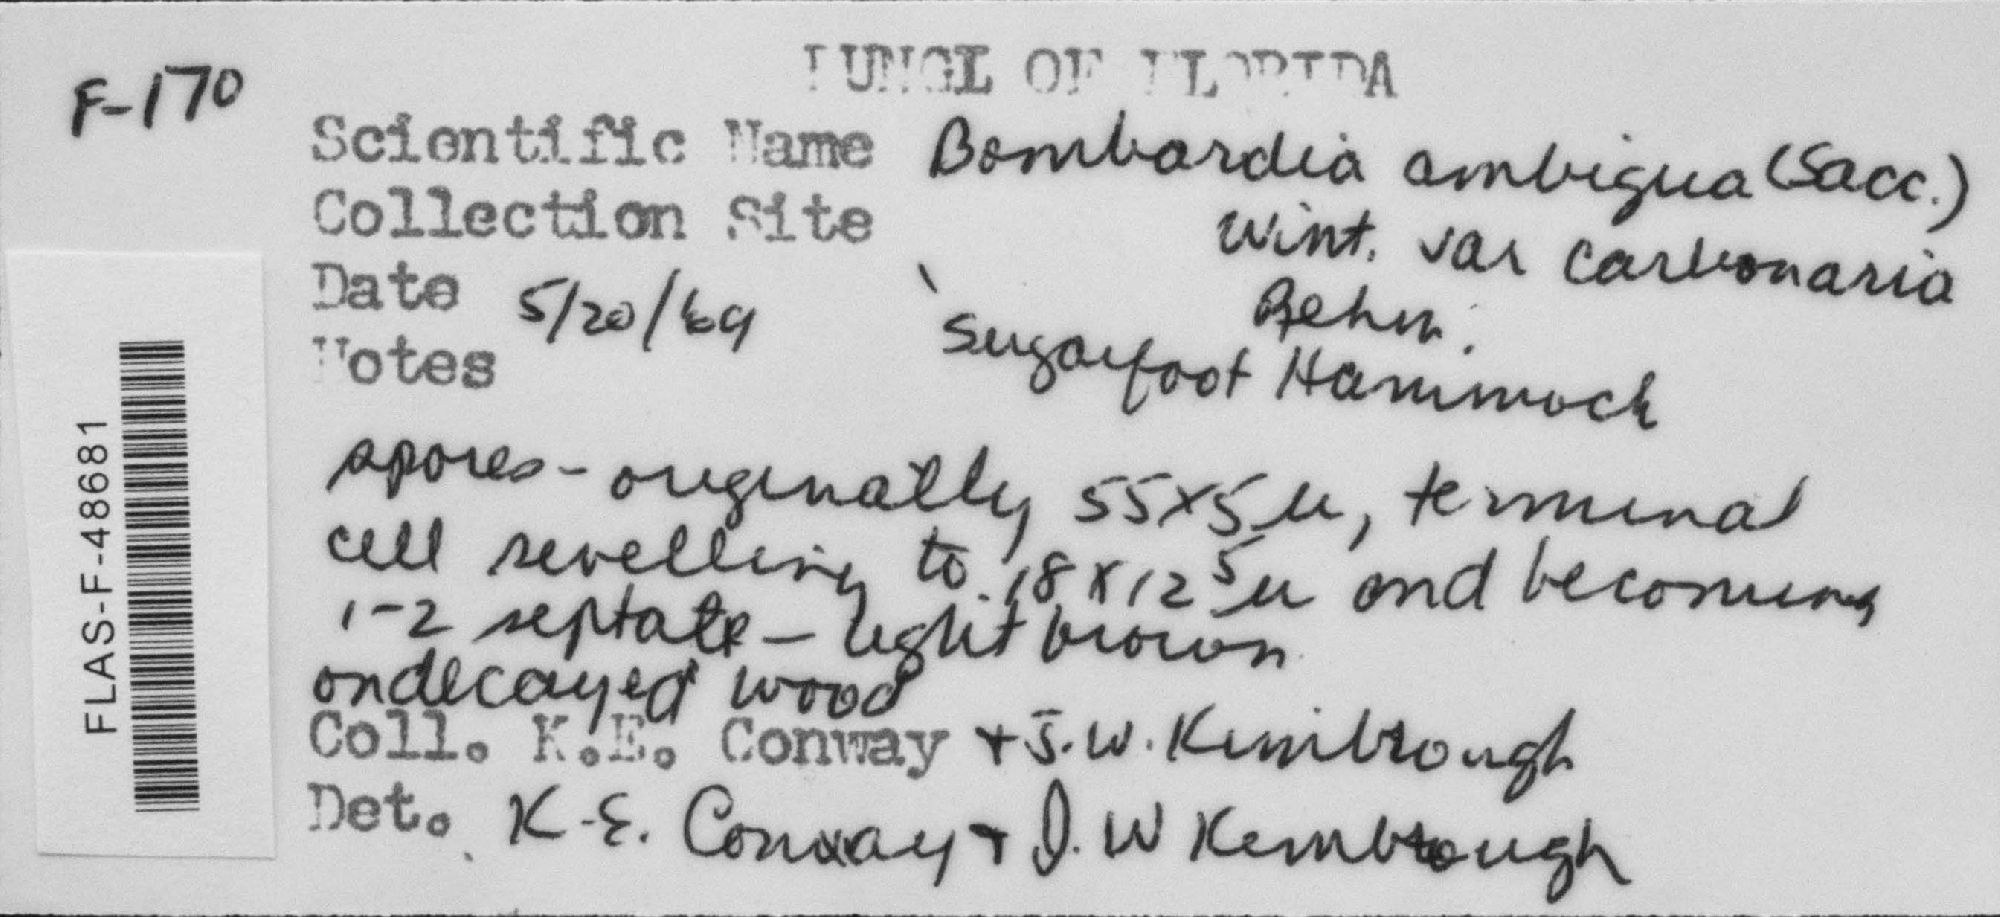 FUNGI OF FLORIDA
F-170
Scientific Name Bombardia ambigua (Sacc.)
Collection Site Wint. var carbonaria
Rehm.
Date 5/20/69 Sugarfoot Hammock
Notes
spores - originally 55x5 µ, terminal
cell swelling to 18 x 12⁵ µ and becoming
1-2 septate - light brown
on decayed wood
Coll. K.E. Conway + J.W. Kimbrough
Det. K.E. Conway + J.W Kimbrough
FLAS-F-48681